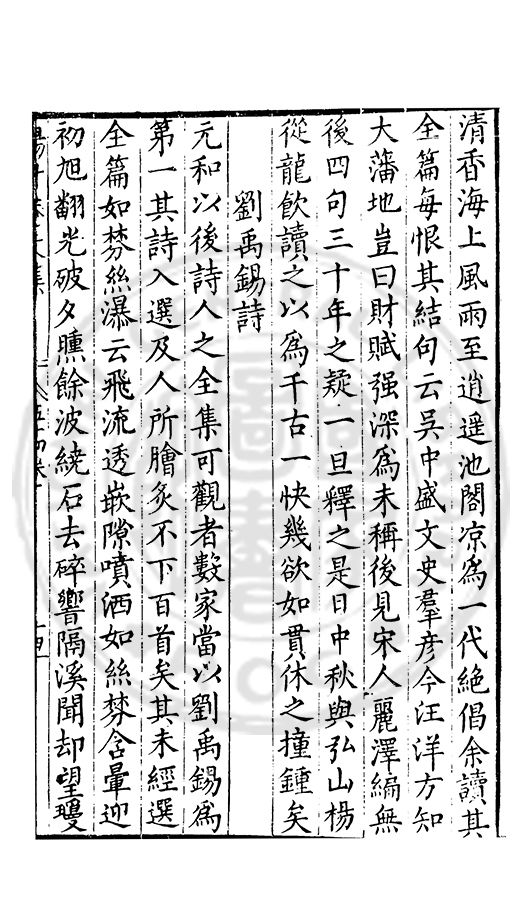 清香海上風雨至逍遥池閣凉為一代絶倡余讀其
全篇每恨其結句云吳中盛文史羣彦今汪洋方知
大藩地豈曰財賦强深為未稱後見宋人麗澤編無
後四句三十年之疑一旦釋之是日中秋與弘山楊
從龍飲讀之以為千古一快幾欲如貫休之撞鍾矣
劉禹錫詩
元和以後詩人之全集可觀者數家當以劉禹錫為
第一其詩入選及人所膾炙不下百首矣其未經選
全篇如棼絲瀑云飛流透嵌隙噴洒如絲棼含暈迎
初旭翻光破夕曛餘波繞石去碎響隔溪聞却望瓊